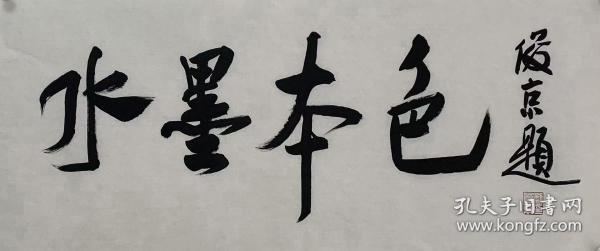 水墨本色
俊京題
孔夫子旧書网
www.kongfz.com